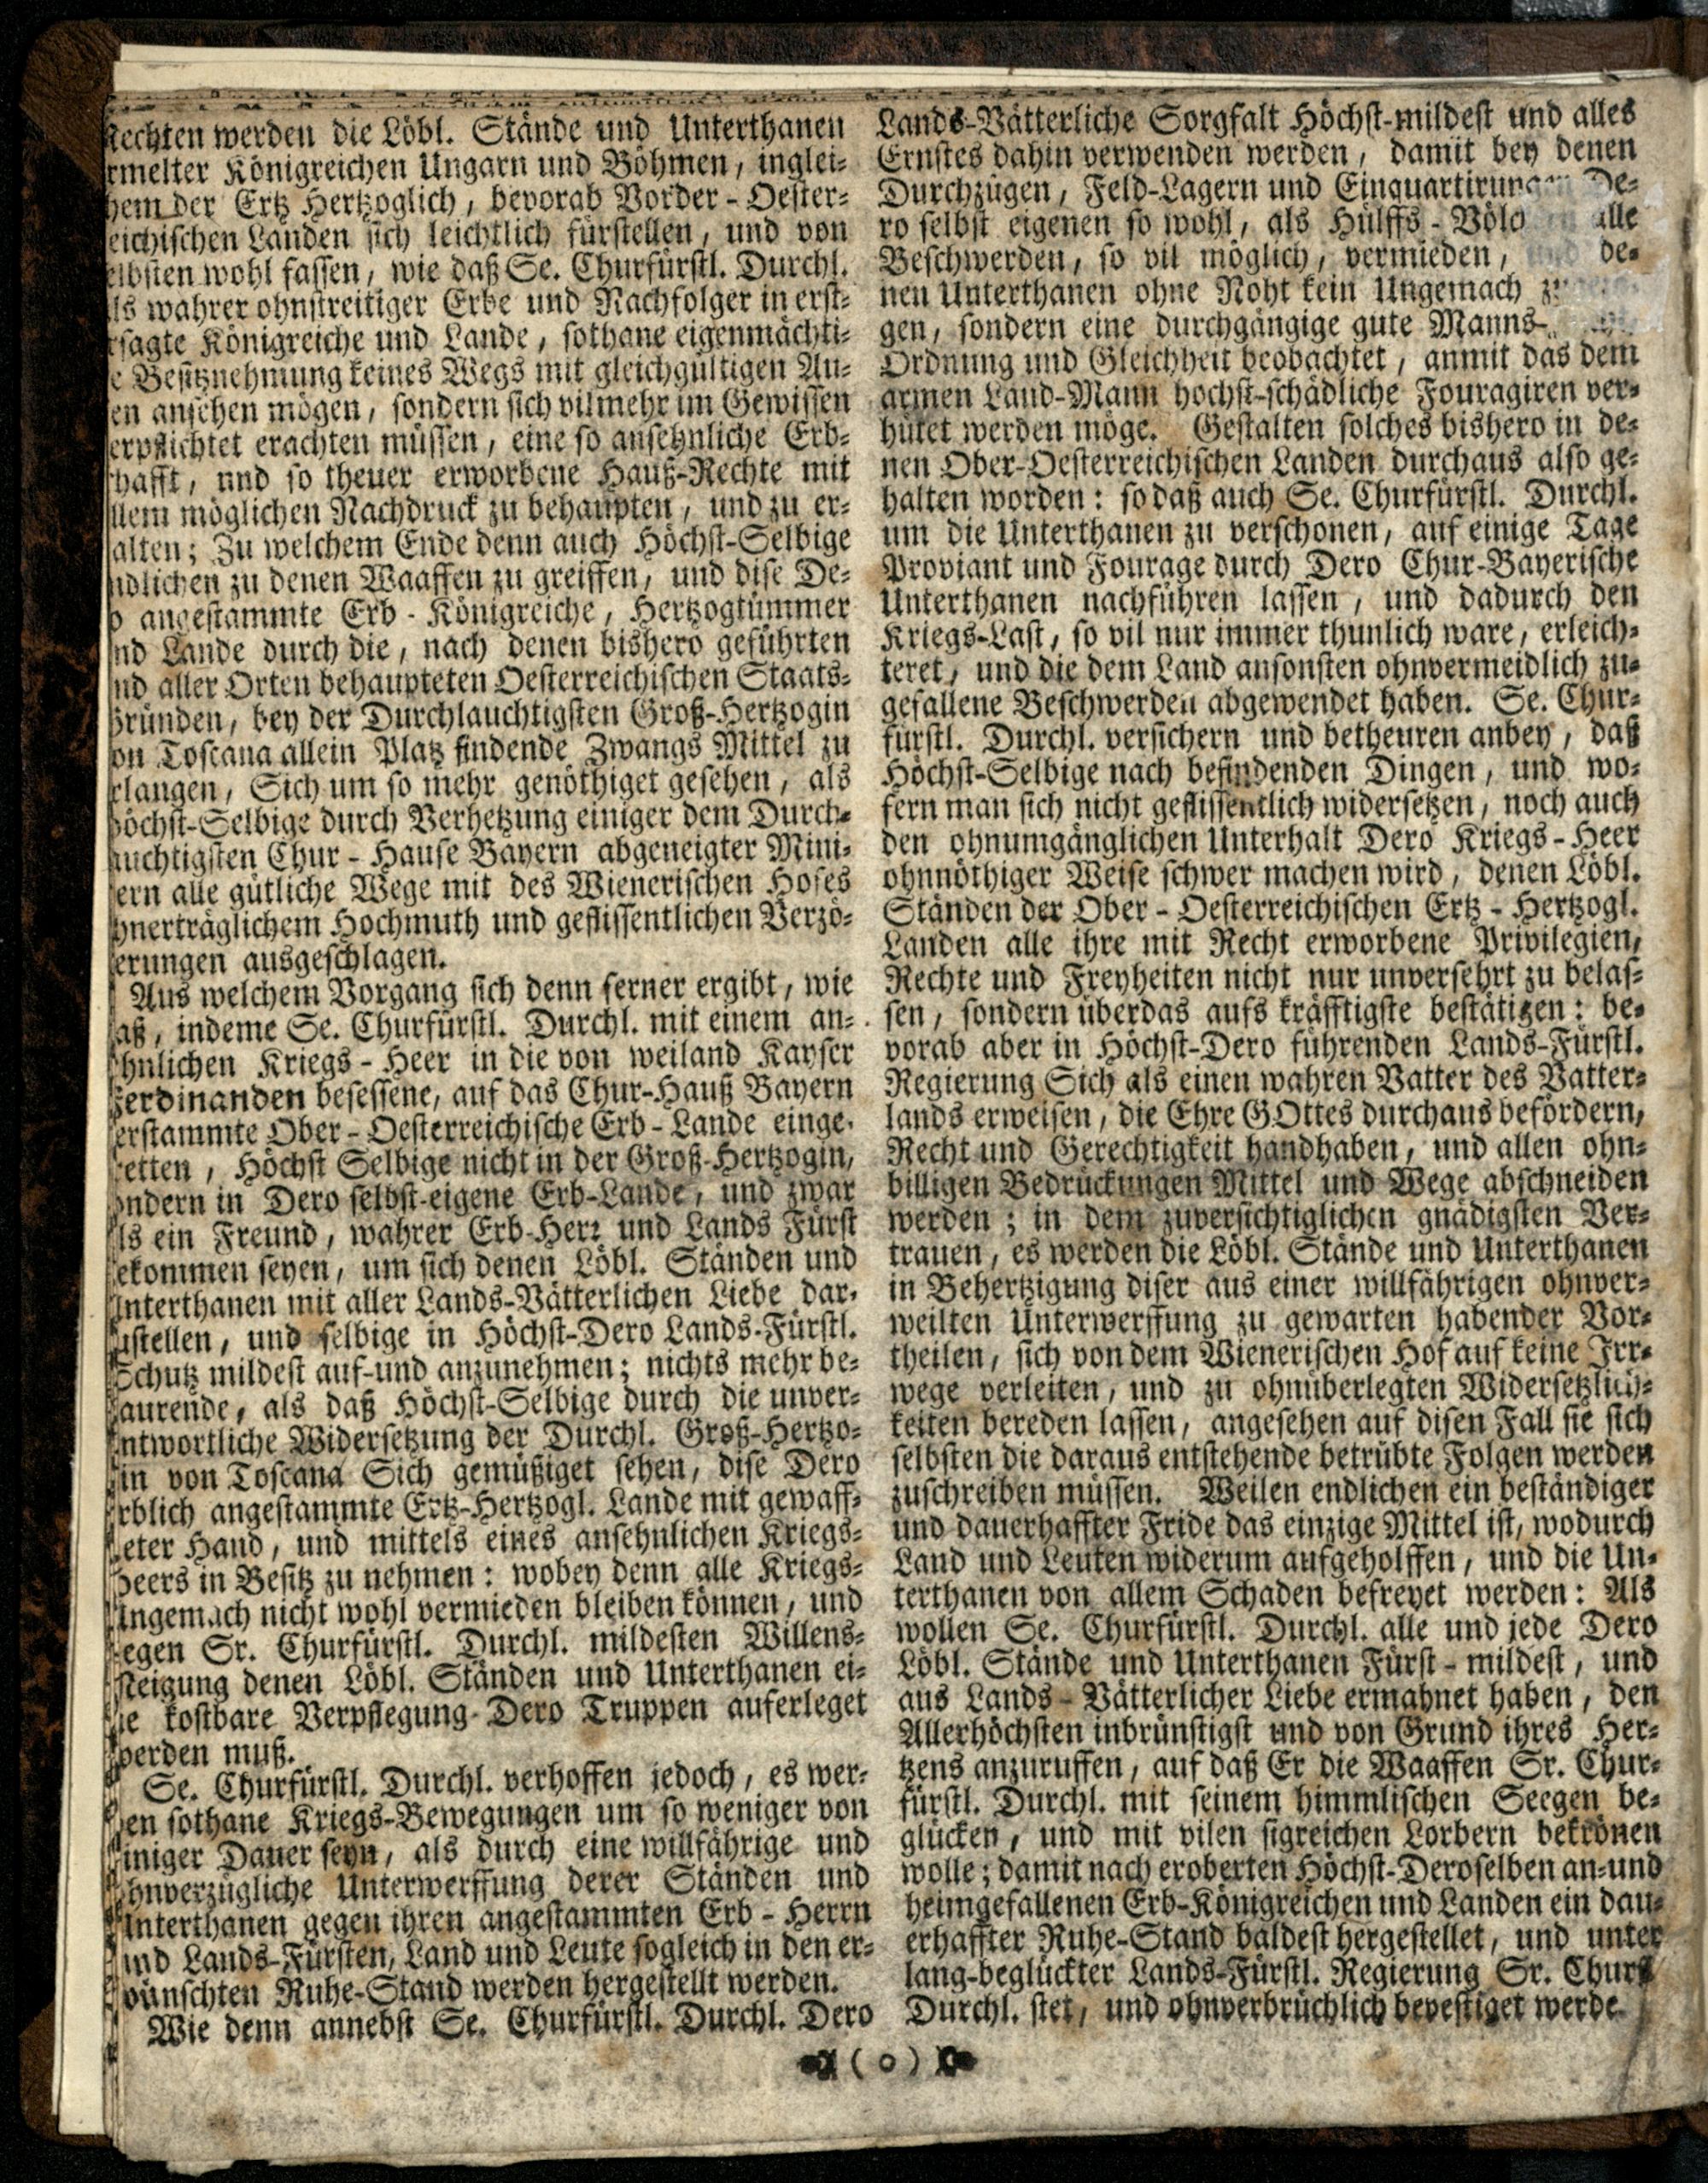 Rechten werden die Löbl. Stände und Unterthanen
rmelter Königreichen Ungarn und Böhmen, inglei-
hem der Ertz Hertzoglich, bevorab Vorder-Oester-
eichischen Landen sich leichtlich fürstellen, und von
elbsten wohl fassen, wie daß Se. Churfürstl. Durchl.
ls wahrer ohnstreitiger Erbe und Nachfolger in erst-
rsagte Königreiche und Lande, sothane eigenmächti-
e Besitznehmung keines Wegs mit gleichgültigen Au-
en ansehen mögen, sondern sich vilmehr im Gewissen
erpflichtet erachten müssen, eine so ansehnliche Erb-
hafft, und so theuer erworbene Hauß-Rechte mit
llem möglichen Nachdruck zu behaupten, und zu er-
alten; Zu welchem Ende denn auch Höchst-Selbige
ndlichen zu denen Waaffen zu greiffen, und dise De-
o angestammte Erb-Königreiche, Hertzogtümmer
nd Lande durch die, nach denen bishero geführten
nd aller Orten behaupteten Oesterreichischen Staats-
Gründen, bey der Durchlauchtigsten Groß-Hertzogin
on Toscana allein Platz findende Zwangs Mittel zu
rlangen, Sich um so mehr genöthiget gesehen, als
höchst-Selbige durch Verhetzung einiger dem Durch-
auchtigsten Chur-Hause Bayern abgeneigter Mini-
ern alle gütliche Wege mit des Wienerischen Hofes
hnerträglichem Hochmuth und geflissentlichen Verzö-
erungen ausgeschlagen.
Aus welchem Vorgang sich denn ferner ergibt, wie
aß, indeme Se. Churfürstl. Durchl. mit einem an-
hnlichen Kriegs-Heer in die von weiland Kayser
Ferdinanden besessene, auf das Chur-Hauß Bayern
erstammte Ober-Oesterreichische Erb-Lande einge-
retten, Höchst Selbige nicht in der Groß-Hertzogin,
ondern in Dero selbst-eigene Erb-Lande, und zwar
ls ein Freund, wahrer Erb-Herr und Lands Fürst
ekommen seyen, um sich denen Löbl. Ständen und
Unterthanen mit aller Lands-Vätterlichen Liebe dar-
ustellen, und selbige in Höchst-Dero Lands-Fürstl.
Schutz mildest auf-und anzunehmen; nichts mehr be-
aurende, als daß Höchst-Selbige durch die unver-
ntwortliche Widersetzung der Durchl. Groß-Hertzo-
in von Toscana Sich gemüßiget sehen, dise Dero
rblich angestammte Ertz-Hertzogl. Lande mit gewaff-
eter Hand, und mittels eines ansehnlichen Kriegs-
heers in Besitz zu nehmen: wobey denn alle Kriegs-
Ungemach nicht wohl vermieden bleiben können, und
egen Sr. Churfürstl. Durchl. mildesten Willens-
Neigung denen Löbl. Ständen und Unterthanen ei-
ne kostbare Verpflegung Dero Truppen auferleget
werden muß.
Se. Churfürstl. Durchl. verhoffen jedoch, es wer-
en sothane Kriegs-Bewegungen um so weniger von
iniger Dauer seyn, als durch eine willfährige und
hnverzügliche Unterwerffung derer Ständen und
Unterthanen gegen ihren angestammten Erb-Herrn
und Lands-Fürsten, Land und Leute sogleich in den er-
wünschten Ruhe-Stand werden hergestellt werden.
Wie denn annebst Se. Churfürstl. Durchl. Dero
Lands-Vätterliche Sorgfalt Höchst-mildest und alles
Ernstes dahin verwenden werden, damit bey denen
Durchzügen, Feld-Lagern und Einquartirungen De-
ro selbst eigenen so wohl, als Hülffs-Völc alle
Beschwerden, so vil möglich, vermieden, und de-
nen Unterthanen ohne Noht kein Ungemach
gen, sondern eine durchgängige gute Manns-
Ordnung und Gleichheit beobachtet, anmit das dem
armen Land-Mann höchst-schädliche Fouragiren ver-
hütet werden möge. Gestalten solches bishero in de-
nen Ober-Oesterreichischen Landen durchaus also ge-
halten worden: so daß auch Se. Churfürstl. Durchl.
um die Unterthanen zu verschonen, auf einige Tage
Proviant und Fourage durch Dero Chur-Bayerische
Unterthanen nachführen lassen, und dadurch den
Kriegs-Last, so vil nur immer thunlich ware, erleich-
teret, und die dem Land ansonsten ohnvermeidlich zu-
gefallene Beschwerden abgewendet haben. Se. Chur-
fürstl. Durchl. versichern und betheuren anbey, daß
Höchst-Selbige nach befindenden Dingen, und wo-
fern man sich nicht geflissentlich widersetzen, noch auch
den ohnumgänglichen Unterhalt Dero Kriegs-Heer
ohnnöthiger Weise schwer machen wird, denen Löbl.
Ständen der Ober-Oesterreichischen Ertz-Hertzogl.
Landen alle ihre mit Recht erworbene Privilegien,
Rechte und Freyheiten nicht nur unversehrt zu belas-
sen, sondern überdas aufs kräfftigste bestätigen: be-
vorab aber in Höchst-Dero führenden Lands-Fürstl.
Regierung Sich als einen wahren Vatter des Vatter-
lands erweisen, die Ehre GOttes durchaus befördern,
Recht und Gerechtigkeit handhaben, und allen ohn-
billigen Bedrückungen Mittel und Wege abschneiden
werden; in dem zuversichtiglichen gnädigsten Ver-
trauen, es werden die Löbl. Stände und Unterthanen
in Behertzigung diser aus einer willfährigen ohnver-
weilten Unterwerffung zu gewarten habender Vor-
theilen, sich von dem Wienerischen Hof auf keine Irr-
wege verleiten, und zu ohnüberlegten Widersetzlich-
keiten bereden lassen, angesehen auf disen Fall sie sich
selbsten die daraus entstehende betrübte Folgen werden
zuschreiben müssen. Weilen endlichen ein beständiger
und dauerhaffter Fride das einzige Mittel ist, wodurch
Land und Leuten widerum aufgeholffen, und die Un-
terthanen von allem Schaden befreyet werden: Als
wollen Se. Churfürstl. Durchl. alle und jede Dero
Löbl. Stände und Unterthanen Fürst-mildest, und
aus Lands-Vätterlicher Liebe ermahnet haben, den
Allerhöchsten inbrünstigst und von Grund ihres Her-
tzens anzuruffen, auf daß Er die Waaffen Sr. Chur-
fürstl. Durchl. mit seinem himmlischen Seegen be-
glücken, und mit vilen sigreichen Lorbern bekrönen
wolle; damit nach eroberten Höchst-Deroselben an-und
heimgefallenen Erb-Königreichen und Landen ein dau-
erhaffter Ruhe-Stand baldest hergestellet, und unter
lang-beglückter Lands-Fürstl. Regierung Sr. Churf
Durchl. stet, und ohnverbrüchlich bevestiget werde.
( o )